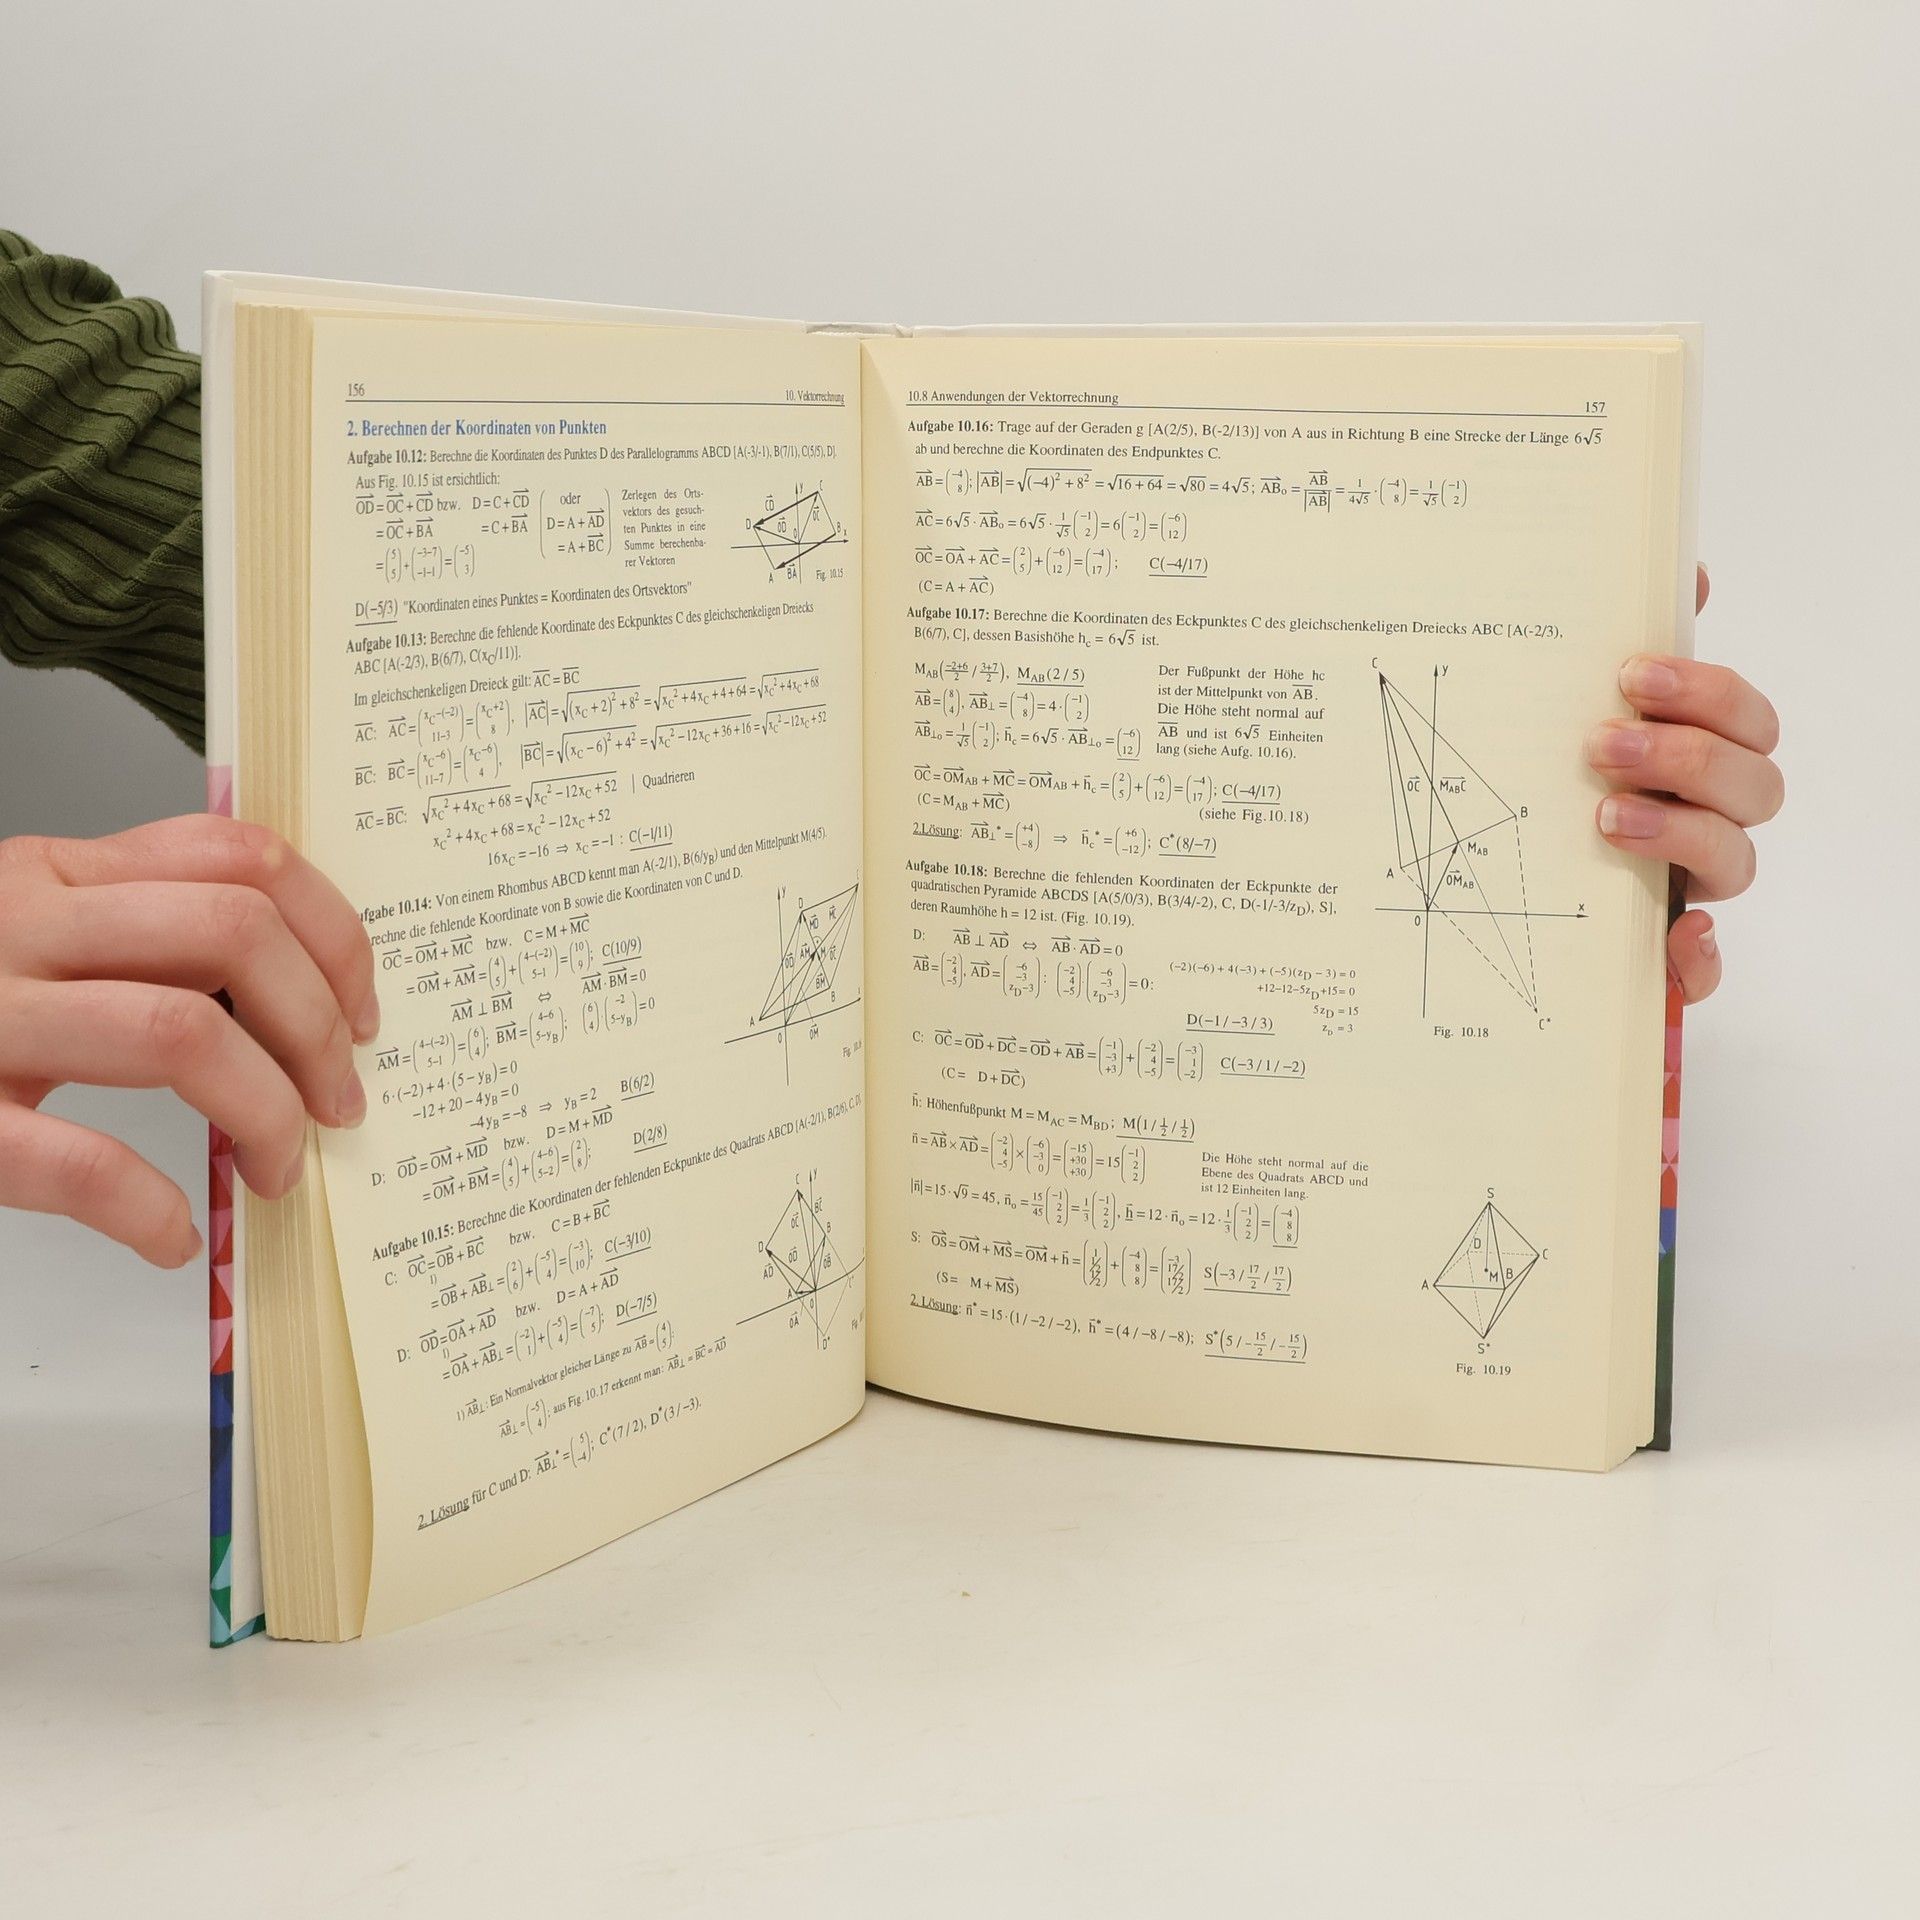 156
10. Vektorrechnung
2. Berechnen der Koordinaten von Punkten
Aufgabe 10.12: Berechne die Koordinaten des Punktes D des Parallelogramms ABCD [A(-3/-1), B(7/1), C(5/5), D].
Aus Fig. 10.15 ist ersichtlich:
OD = OC + CD bzw. D = C + CD
= OC + BA = C + BA
= (5 5) + (-3-7 -1-1) = (-5 3)
oder
D = A + AD
= A + BC
Zerlegen des Orts-
vektors des gesuch-
ten Punktes in eine
Summe berechenba-
rer Vektoren
Fig. 10.15
D(−5/3) "Koordinaten eines Punktes = Koordinaten des Ortsvektors"
Aufgabe 10.13: Berechne die fehlende Koordinate des Eckpunktes C des gleichschenkeligen Dreiecks
ABC [A(-2/3), B(6/7), C(xC/11)].
Im gleichschenkeligen Dreieck gilt: AC = BC
AC: AC = (xC−(−2) 11−3) = (xC+2 8), |AC| = √(xC + 2)² + 8² = √xC² + 4xC + 4 + 64 = √xC² + 4xC + 68
BC: BC = (xC−6 11−7) = (xC−6 4), |BC| = √(xC − 6)² + 4² = √xC² − 12xC + 36 + 16 = √xC² − 12xC + 52
AC = BC: √xC² + 4xC + 68 = √xC² − 12xC + 52 | Quadrieren
xC² + 4xC + 68 = xC² − 12xC + 52
16xC = −16 ⇒ xC = −1 : C(−1/11)
fgabe 10.14: Von einem Rhombus ABCD kennt man A(-2/1), B(6/yB) und den Mittelpunkt M(4/5).
rechne die fehlende Koordinate von B sowie die Koordinaten von C und D.
OC = OM + MC bzw. C = M + MC
= OM + AM = (4 5) + (4−(−2) 5−1) = (10 9); C(10/9)
AM ⊥ BM ⇔ AM · BM = 0
AM = (4−(−2) 5−1) = (6 4); BM = (4−6 5−yB); (6 4) · (−2 5−yB) = 0
6 · (−2) + 4 · (5 − yB) = 0
−12 + 20 − 4yB = 0
−4yB = −8 ⇒ yB = 2 B(6/2)
D: OD = OM + MD bzw. D = M + MD
= OM + BM = (4 5) + (4−6 5−2) = (2 8); D(2/8)
Aufgabe 10.15: Berechne die Koordinaten der fehlenden Eckpunkte des Quadrats ABCD [A(-2/1), B(2/6), C, D].
C: OC = OB + BC bzw. C = B + BC
1)
= OB + AB⊥ = (2 6) + (−5 4) = (−3 10); C(−3/10)
D: OD = OA + AD bzw. D = A + AD
1)
= OA + AB⊥ = (−2 1) + (−5 4) = (−7 5); D(−7/5)
1) AB⊥: Ein Normalvektor gleicher Länge zu AB = (4 5);
AB⊥ = (−5 4); aus Fig. 10.17 erkennt man: AB⊥ = BC = AD
2. Lösung für C und D: AB⊥* = (5 −4); C*(7/2), D*(3/−3).
10.8 Anwendungen der Vektorrechnung
157
Aufgabe 10.16: Trage auf der Geraden g [A(2/5), B(-2/13)] von A aus in Richtung B eine Strecke der Länge 6√5
ab und berechne die Koordinaten des Endpunktes C.
AB = (−4 8); |AB| = √(−4)² + 8² = √16 + 64 = √80 = 4√5; AB₀ = AB/|AB| = 1/4√5 · (−4 8) = 1/√5 (−1 2)
AC = 6√5 · AB₀ = 6√5 · 1/√5 (−1 2) = 6(−1 2) = (−6 12)
OC = OA + AC = (2 5) + (−6 12) = (−4 17); C(−4/17)
(C = A + AC)
Aufgabe 10.17: Berechne die Koordinaten des Eckpunktes C des gleichschenkeligen Dreiecks ABC [A(-2/3),
B(6/7), C], dessen Basishöhe hc = 6√5 ist.
MAB(−2+6/2 / 3+7/2), MAB(2/5)
AB = (8 4), AB⊥ = (−4 8) = 4 · (−1 2)
AB⊥₀ = 1/√5 (−1 2); hc = 6√5 · AB⊥₀ = (−6 12)
Der Fußpunkt der Höhe hc
ist der Mittelpunkt von AB.
Die Höhe steht normal auf
AB und ist 6√5 Einheiten
lang (siehe Aufg. 10.16).
OC = OMAB + MC = OMAB + hc = (2 5) + (−6 12) = (−4 17); C(−4/17)
(C = MAB + MC) (siehe Fig.10.18)
2.Lösung: AB⊥* = (+4 −8) ⇒ hc* = (+6 −12); C*(8/−7)
C y OC MABC B MAB A OMAB 0 x C*
Fig. 10.18
Aufgabe 10.18: Berechne die fehlenden Koordinaten der Eckpunkte der
quadratischen Pyramide ABCDS [A(5/0/3), B(3/4/-2), C, D(-1/-3/zD), S],
deren Raumhöhe h = 12 ist. (Fig. 10.19).
D: AB ⊥ AD ⇔ AB · AD = 0
AB = (−2 4 −5), AD = (−6 −3 zD−3) : (−2 4 −5) · (−6 −3 zD−3) = 0:
(−2)(−6) + 4(−3) + (−5)(zD − 3) = 0
+12−12−5zD+15= 0
5zD = 15
zD = 3
D(−1/−3/3)
C: OC = OD + DC = OD + AB = (−1 −3 +3) + (−2 4 −5) = (−3 1 −2) C(−3/1/−2)
(C = D + DC)
h: Höhenfußpunkt M = MAC = MBD; M(1/ 1/2 / 1/2)
n = AB × AD = (−2 4 −5) × (−6 −3 0) = (−15 +30 +30) = 15(−1 2 2)
Die Höhe steht normal auf die
Ebene des Quadrats ABCD und
ist 12 Einheiten lang.
|n| = 15 · √9 = 45, n₀ = 15/45 (−1 2 2) = 1/3 (−1 2 2), h = 12 · n₀ = 12 · 1/3 (−1 2 2) = (−4 8 8)
S: OS = OM + MS = OM + h = (1 1/2 1/2) + (−4 8 8) = (−3 17/2 17/2) S(−3 / 17/2 / 17/2)
(S = M + MS)
2. Lösung: n* = 15 · (1/−2/−2), h* = (4/−8/−8); S*(5 / −15/2 / −15/2)
S D C M A B S*
Fig. 10.19